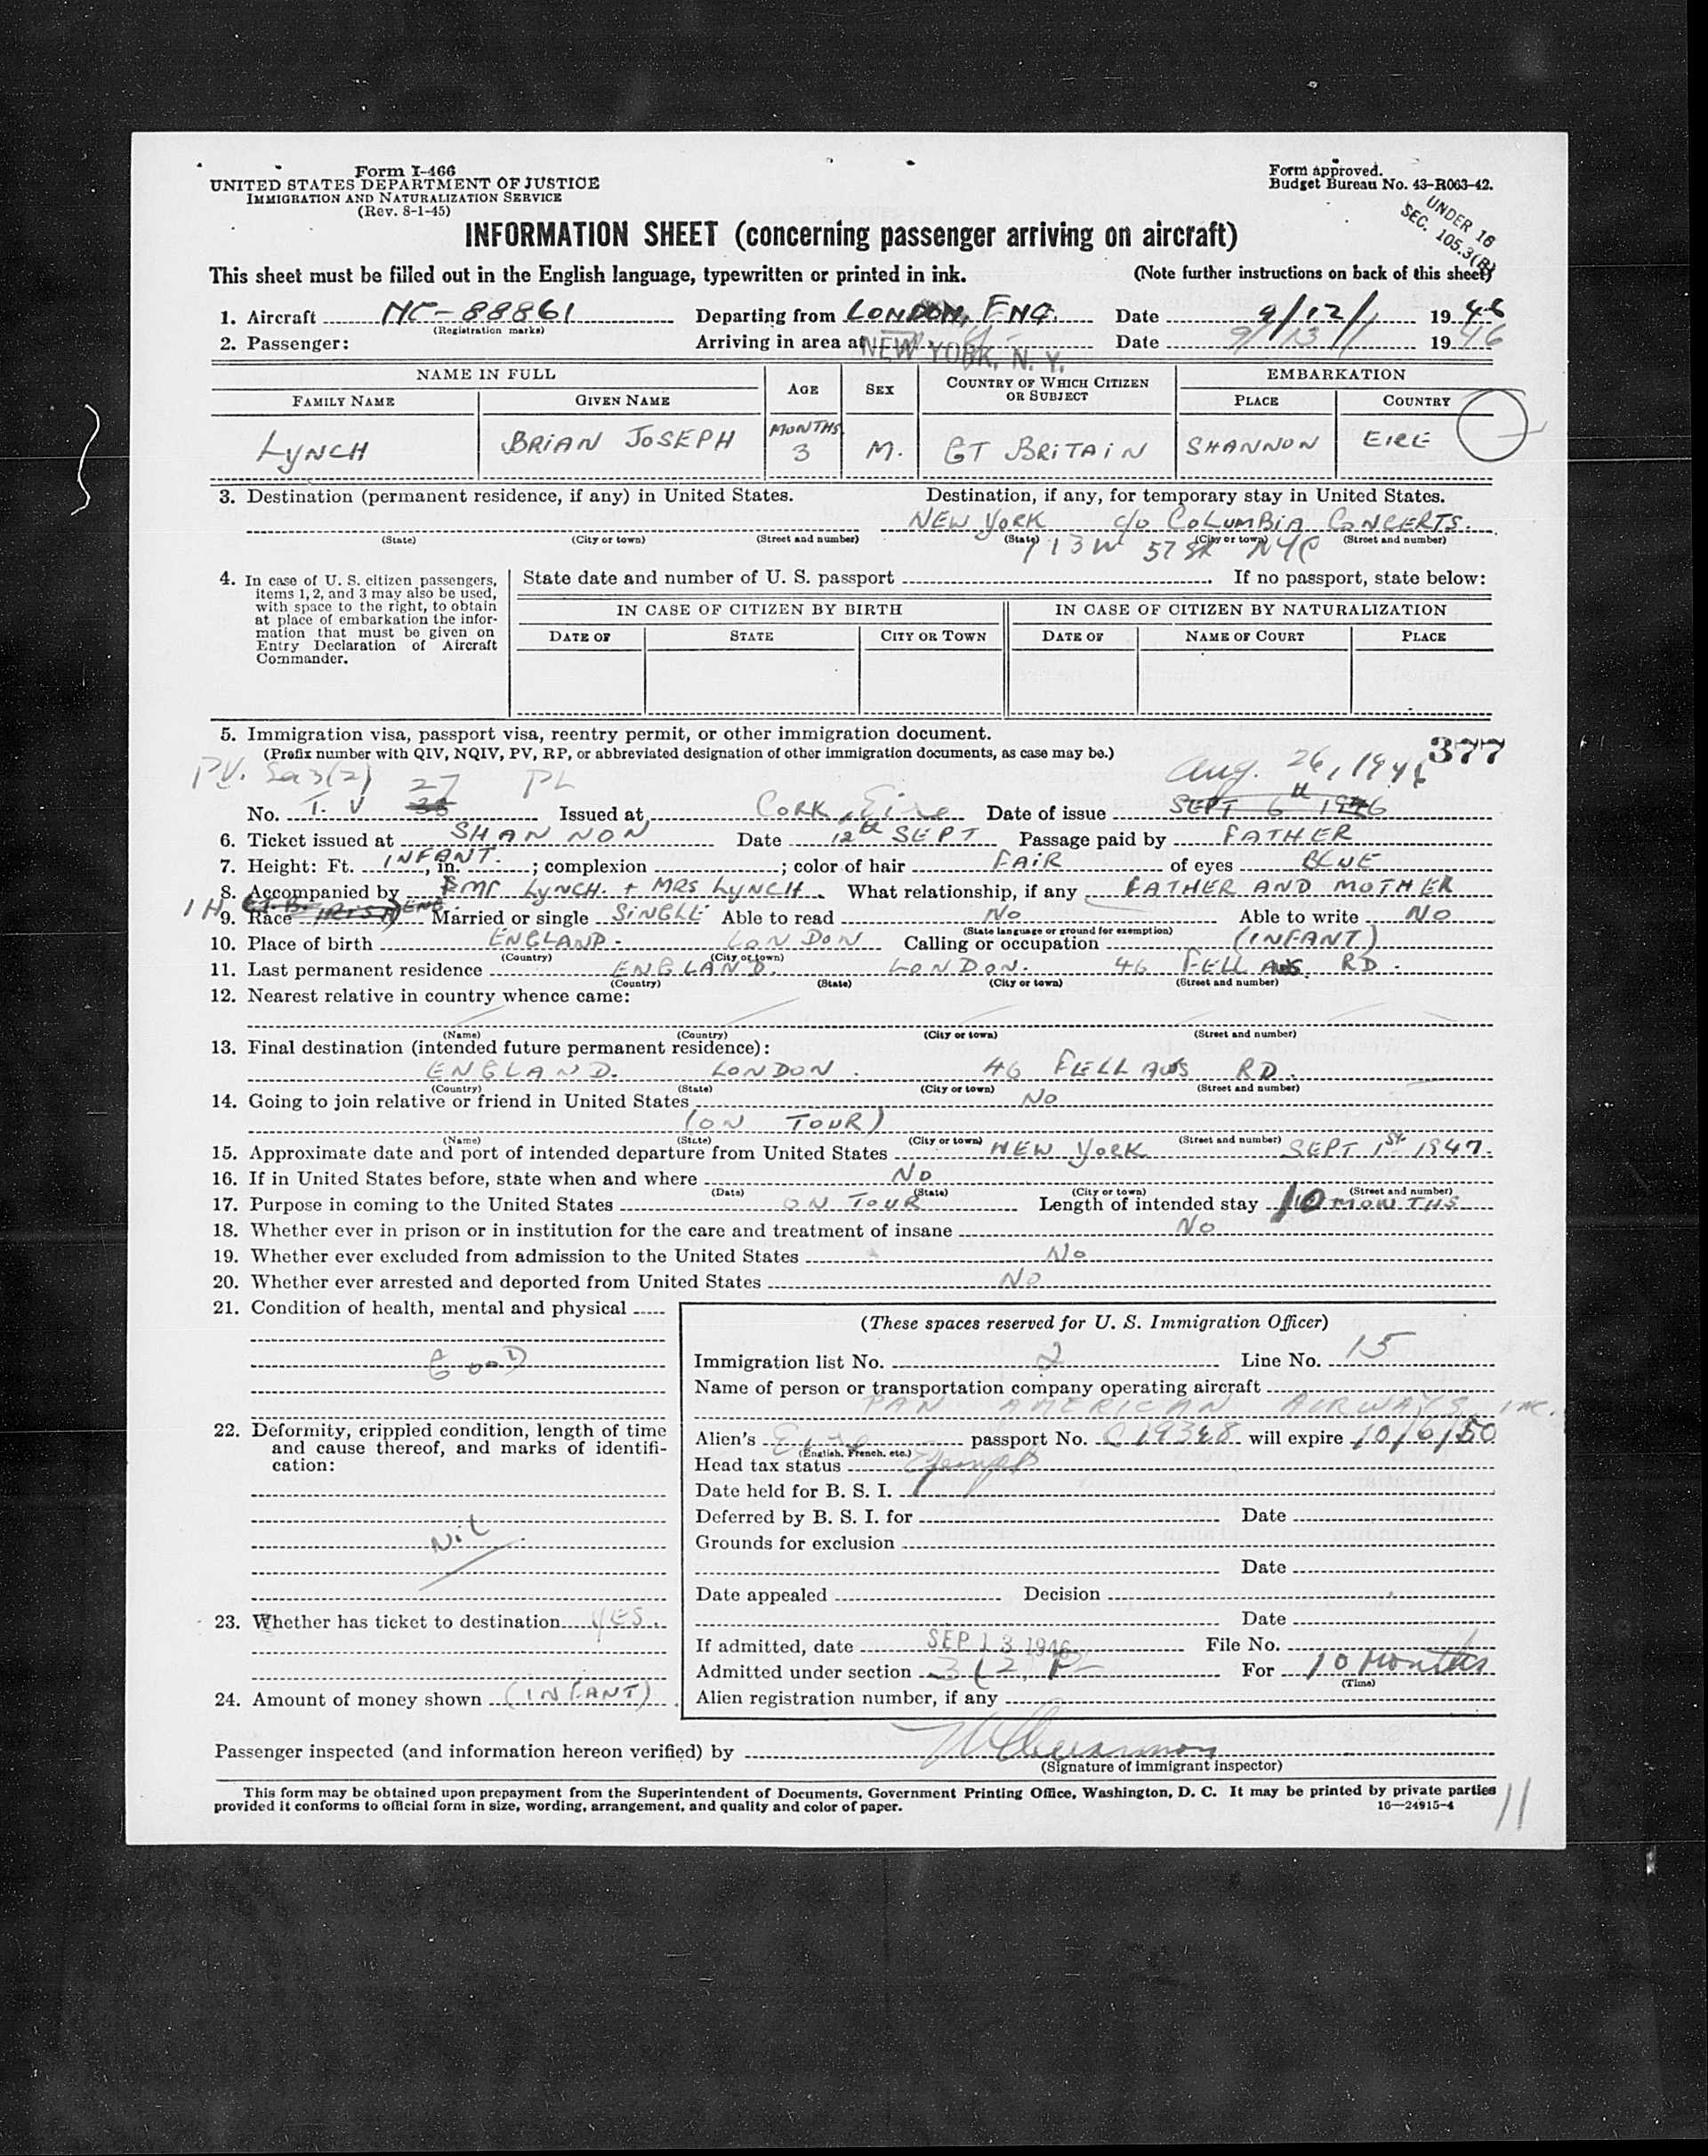 Form I-466
UNITED STATES DEPARTMENT OF JUSTICE
IMMIGRATION AND NATURALIZATION SERVICE
(Rev. 8-1-45)
Form approved.
Budget Bureau No. 43-R063-42.
UNDER 16
SEC. 105.3(B)
INFORMATION SHEET (concerning passenger arriving on aircraft)
This sheet must be filled out in the English language, typewritten or printed in ink. (Note further instructions on back of this sheet)
1. Aircraft NC-88861 Departing from LONDON, ENG. Date 9/12/ 1946
(Registration marks)
2. Passenger: Arriving in area at NEW YORK, N. Y. Date 9/13/ 1946
NAME IN FULL AGE SEX COUNTRY OF WHICH CITIZEN OR SUBJECT EMBARKATION
FAMILY NAME GIVEN NAME PLACE COUNTRY
LYNCH BRIAN JOSEPH MONTHS 3 M. GT BRITAIN SHANNON EIRE
3. Destination (permanent residence, if any) in United States. Destination, if any, for temporary stay in United States.
NEW YORK c/o COLUMBIA CONCERTS.
(State) (City or town) (Street and number) (State) (City or town) (Street and number)
113 W 57 St NYC
4. In case of U. S. citizen passengers, items 1, 2, and 3 may also be used, with space to the right, to obtain at place of embarkation the information that must be given on Entry Declaration of Aircraft Commander.
State date and number of U. S. passport If no passport, state below:
IN CASE OF CITIZEN BY BIRTH IN CASE OF CITIZEN BY NATURALIZATION
DATE OF STATE CITY OR TOWN DATE OF NAME OF COURT PLACE
5. Immigration visa, passport visa, reentry permit, or other immigration document.
(Prefix number with QIV, NQIV, PV, RP, or abbreviated designation of other immigration documents, as case may be.)
377
PV. Sec 3(2) 27 PL Aug. 26, 1946
No. T. V Issued at CORK, Eire Date of issue SEPT 6th 1946
6. Ticket issued at SHANNON Date 12th SEPT Passage paid by FATHER
7. Height: Ft. INFANT., in. ; complexion ; color of hair FAIR of eyes BLUE
8. Accompanied by MR LYNCH. + MRS LYNCH. What relationship, if any FATHER AND MOTHER
9. Race IRISH ENG Married or single SINGLE Able to read No Able to write NO
(State language or ground for exemption)
10. Place of birth ENGLAND - LONDON Calling or occupation (INFANT)
(Country) (City or town)
11. Last permanent residence ENGLAND. LONDON. 46 FELLOWS RD.
(Country) (State) (City or town) (Street and number)
12. Nearest relative in country whence came:
(Name) (Country) (City or town) (Street and number)
13. Final destination (intended future permanent residence):
ENGLAND. LONDON. 46 FELLOWS RD.
(Country) (State) (City or town) (Street and number)
14. Going to join relative or friend in United States No
(ON TOUR)
(Name) (State) (City or town) (Street and number)
15. Approximate date and port of intended departure from United States NEW YORK SEPT 1st 1947.
16. If in United States before, state when and where NO
(Date) (State) (City or town) (Street and number)
17. Purpose in coming to the United States ON TOUR Length of intended stay 10 MONTHS
18. Whether ever in prison or in institution for the care and treatment of insane No
19. Whether ever excluded from admission to the United States No
20. Whether ever arrested and deported from United States No
21. Condition of health, mental and physical
GOOD
22. Deformity, crippled condition, length of time and cause thereof, and marks of identification:
Nil
23. Whether has ticket to destination YES.
24. Amount of money shown (INFANT)
(These spaces reserved for U. S. Immigration Officer)
Immigration list No. 2 Line No. 15
Name of person or transportation company operating aircraft
PAN AMERICAN AIRWAYS, INC.
Alien's Eire passport No. C 19348 will expire 10/6/50
(English, French, etc.)
Head tax status Exempt
Date held for B. S. I.
Deferred by B. S. I. for Date
Grounds for exclusion
Date
Date appealed Decision
Date
If admitted, date SEP 13 1946 File No.
Admitted under section 3(2) For 10 Months
(Time)
Alien registration number, if any
Passenger inspected (and information hereon verified) by
(Signature of immigrant inspector)
This form may be obtained upon prepayment from the Superintendent of Documents, Government Printing Office, Washington, D. C. It may be printed by private parties
provided it conforms to official form in size, wording, arrangement, and quality and color of paper. 16—24915-4
11